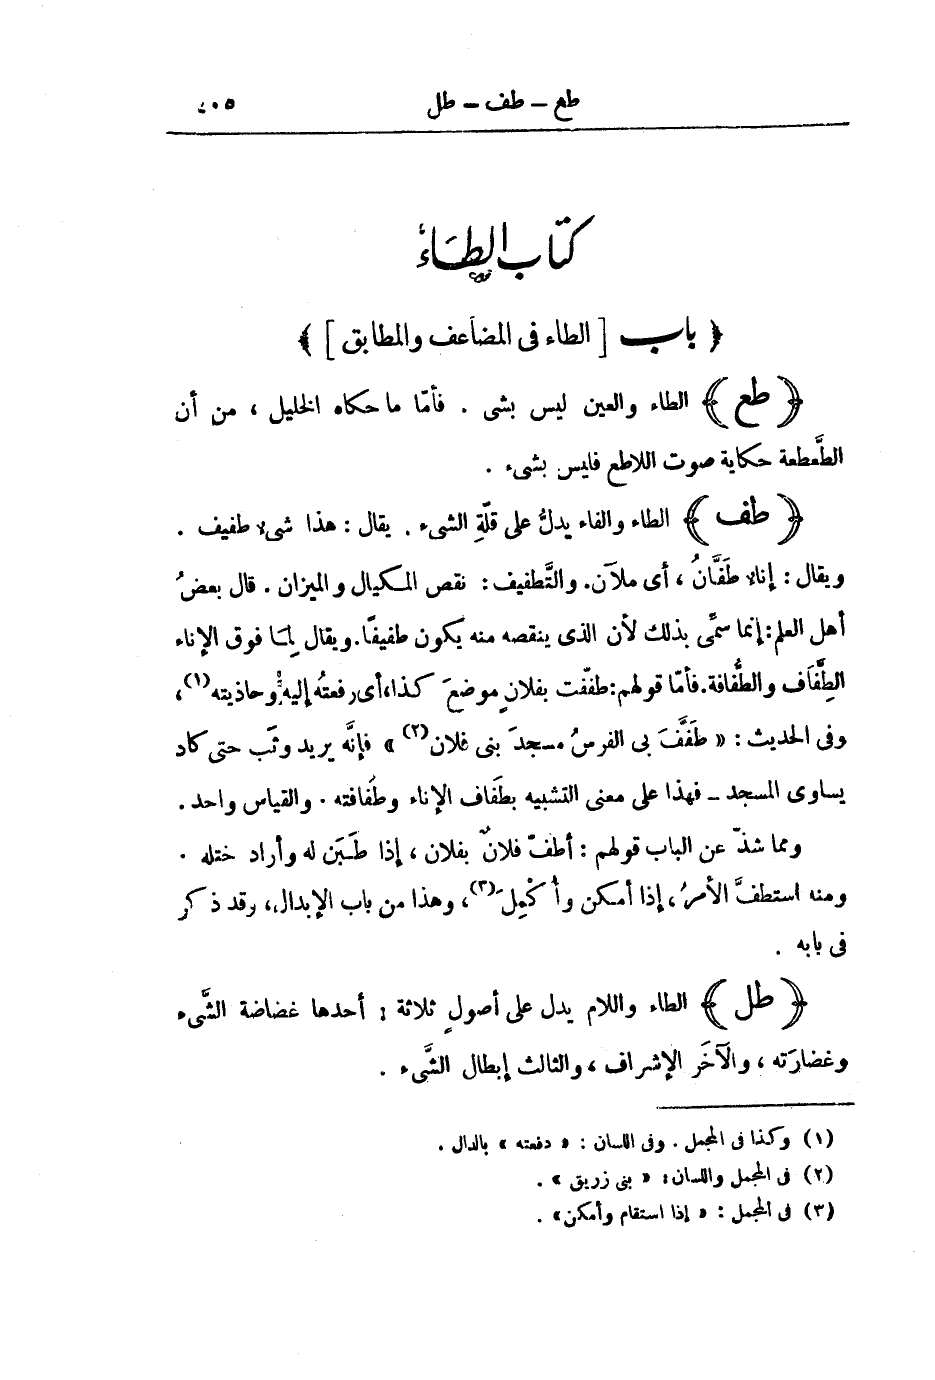 طع – طف – طل ٤٠٥
كتاب الطاء
﴿ باب [ الطاء فى المضاعف والمطابق ] ﴾
﴿ طع ﴾ الطاء والعين ليس بشى . فأمّا ما حكاه الخليل ، من أن
الطَّعطعة حكاية صوت اللاطع فليس بشىء .
﴿ طف ﴾ الطاء والفاء يدلُّ على قلّةِ الشىء . يقال : هذا شىءٌ طفيف .
ويقال : إناءٌ طَفَّانُ ، أى ملآن. والتَّطفيف : نقص المكيال والميزان . قال بعضُ
أهل العلم: إنما سمِّى بذلك لأن الذى ينقصه منه يكون طفيفًا. ويقال لِمَا فوق الإناء
الطِّفَاف والطُّفافة. فأمّا قولهم: طففّت بفلانٍ موضعَ كذا، أى رفعتُه إليه وحاذيته(١)،
وفى الحديث : « طَفَّفَ بى الفرسُ مسجدَ بنى فلان(٢) » فإنَّه يريد وثَب حتى كاد
يساوى المسجد – فهذا على معنى التشبيه بطَفاف الإناء وطُفافته . والقياس واحد .
ومما شذّ عن الباب قولهم : أطفّ فلانٌ بفلان ، إذا طَبَن له وأراد ختله .
ومنه استطفَّ الأمرُ ، إذا أمكن وأُكْمِلَ(٣)، وهذا من باب الإبدال، وقد ذكر
فى بابه .
﴿ طل ﴾ الطاء واللام يدل على أصولٍ ثلاثة : أحدها غضاضة الشَّىء
وغضارَته ، والآخَر الإشراف ، والثالث إبطال الشَّىء .
(١) وكذا فى المجمل . وفى اللسان : « دفعته » بالدال .
(٢) فى المجمل واللسان: « بنى زريق » .
(٣) فى المجمل : « إذا استقام وأمكن» .